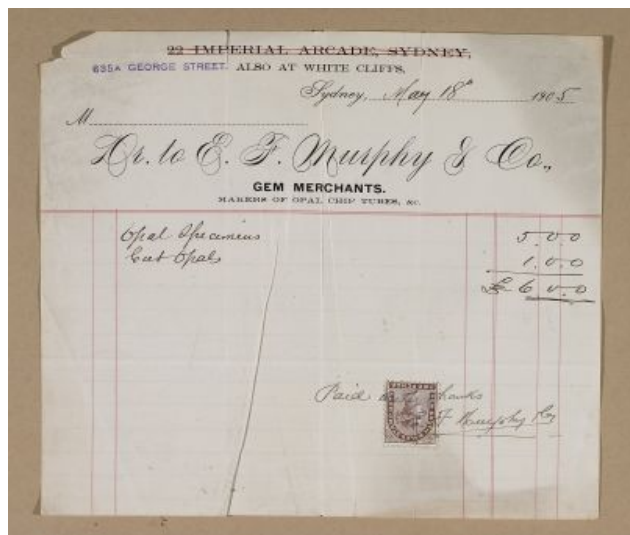 22 IMPERIAL ARCADE, SYDNEY,
635A GEORGE STREET. ALSO AT WHITE CLIFFS,
Sydney, May 18th 1905
M
Dr. to E. F. Murphy & Co.,
GEM MERCHANTS.
MAKERS OF OPAL CHIP TUBES, &c.
Opal Specimens 5.0.0
Cut Opals 1.0.0
£ 6.0.0
Paid hanks
F Murphy Co